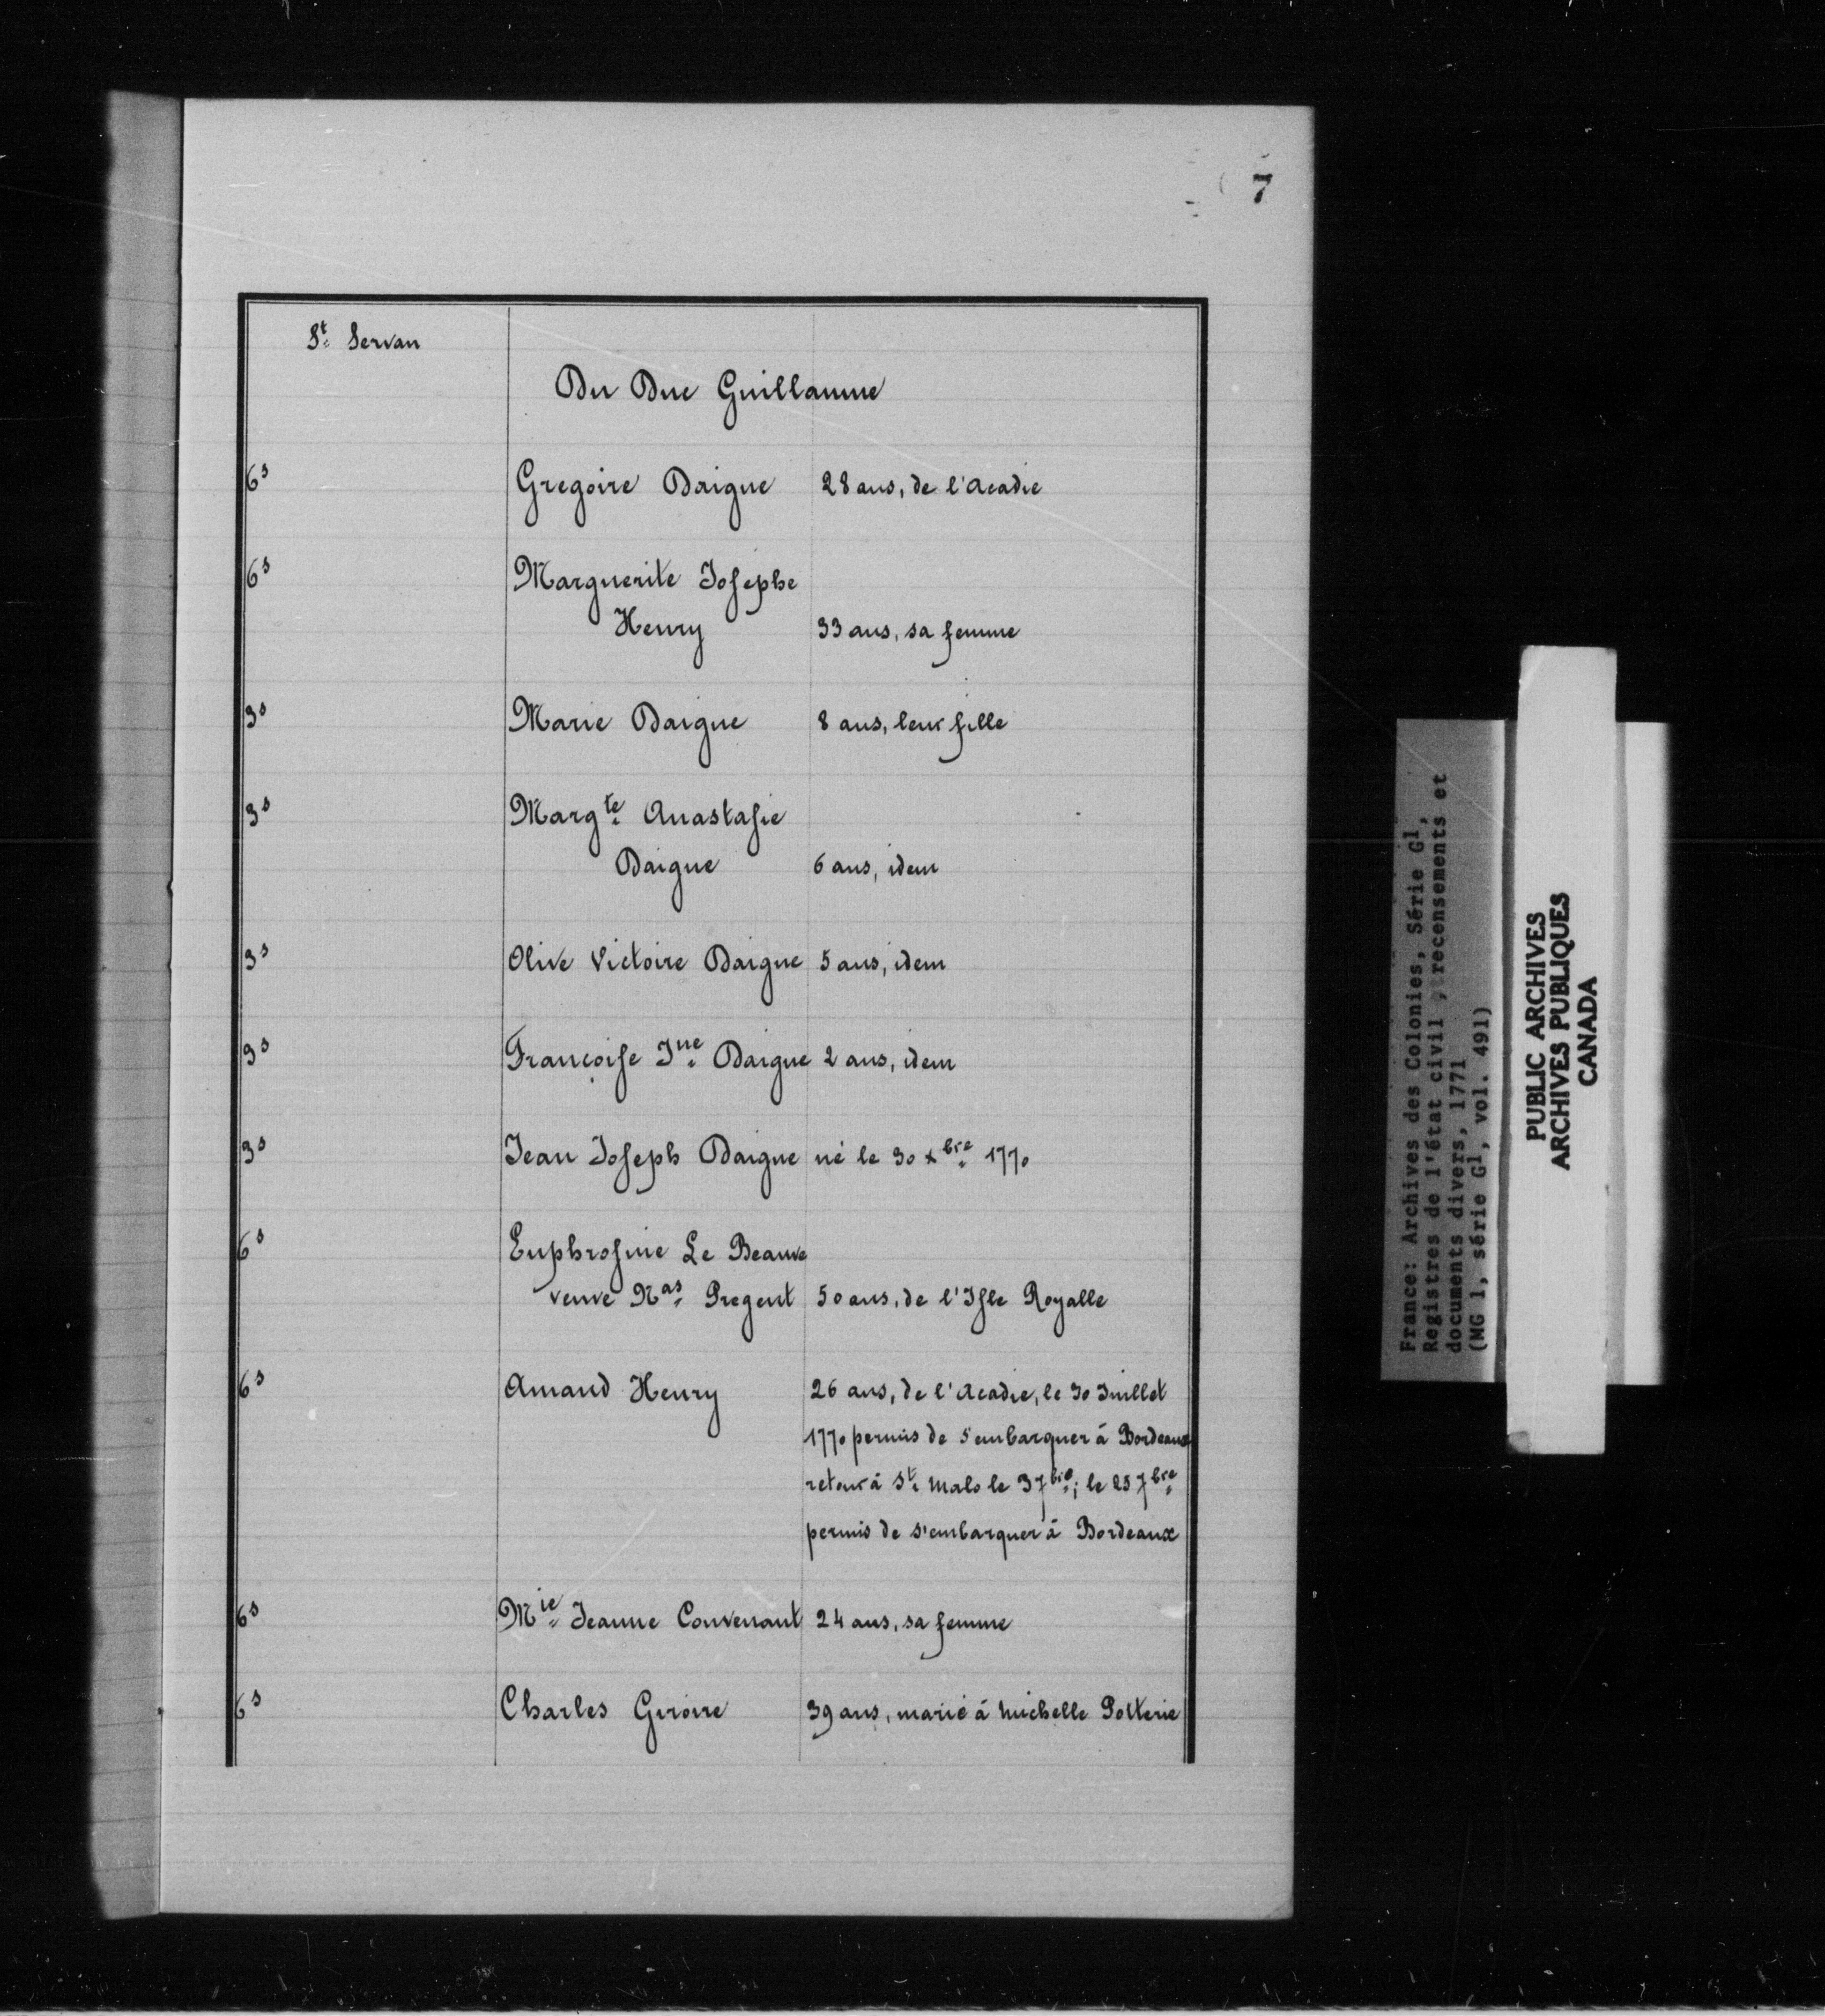 7
St. Servan
Du Duc Guillaume
6s Gregoire Daigue 28 ans, de l'Acadie
6s Marguerite Josephe
Henry 33 ans, sa femme
3s Marie Daigue 8 ans, leur fille
3s Margte. Anastasie
Daigue 6 ans, idem
3s Olive Victoire Daigue 5 ans, idem
3s Françoise Jne. Daigue 2 ans, idem
3s Jean Joseph Daigue né le 30 xbre. 1770
6s Euphrosine Le Beauve
veuve Nas. Pregent 50 ans, de l'Isle Royalle
6s Amand Henry 26 ans, de l'Acadie, le 30 Juillet
1770 permis de s'embarquer à Bordeaux
retour à St. Malo le 3 7bre.; le 25 7bre.
permis de s'embarquer à Bordeaux
6s Mie. Jeanne Convenant 24 ans, sa femme
6s Charles Giroire 39 ans, marié à Michelle Potterie
France: Archives des Colonies, Série G1,
Registres de l'état civil, recensements et
documents divers, 1771
(MG 1, série G1, vol. 491)
PUBLIC ARCHIVES
ARCHIVES PUBLIQUES
CANADA